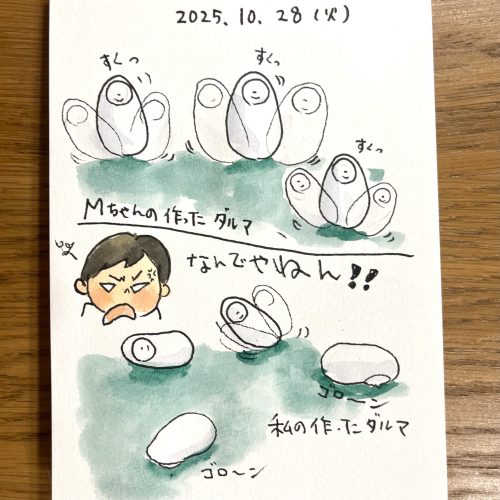 2025.10.28(火)
すくっ
すくっ
すくっ
Mちゃんの作ったダルマ
なんでやねん!!
ゴロ〜ン
私の作ったダルマ
ゴロ〜ン